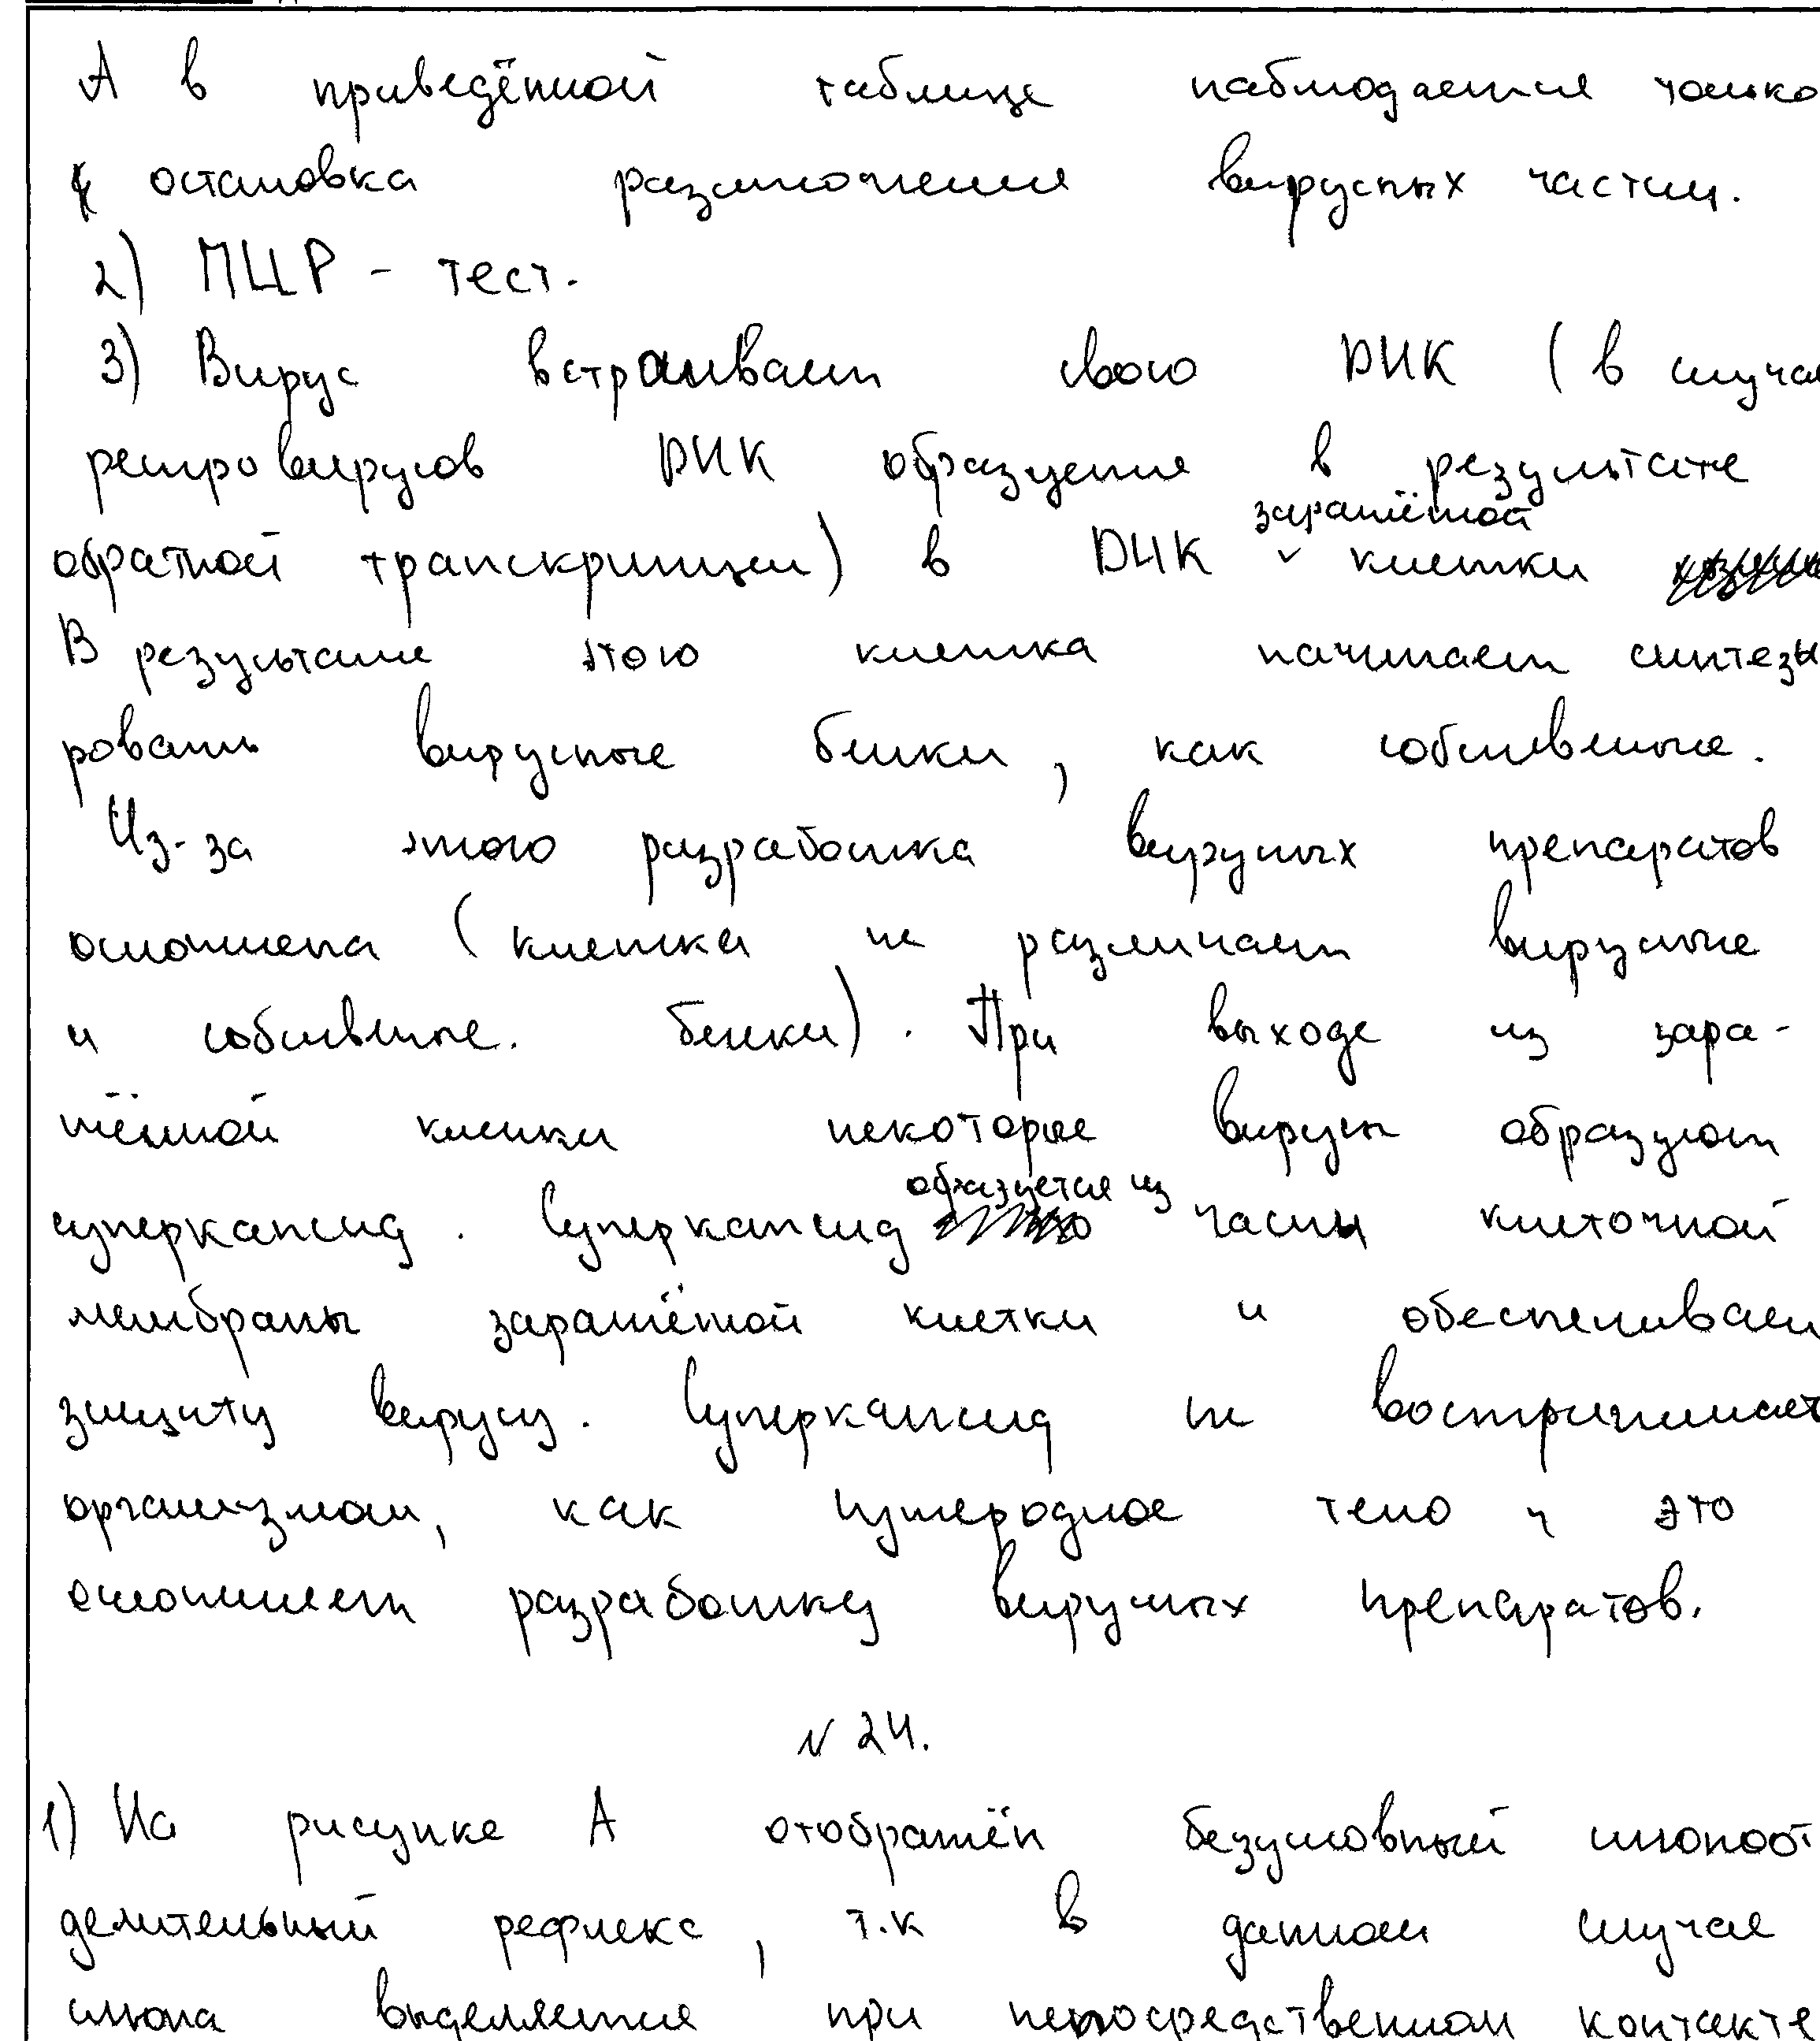 А в приведённой таблице наблюдается только
остановка размножения вирусных частиц.
2) ПЦР - тест.
3) Вирус встраивает свою ДНК (в случае
ретровирусов ДНК образуется в результате
заражённой
обратной транскрипции) в ДНК ˅ клетки
В результате этого клетка начинает синтезы
ровать вирусные белки, как собственные.
Из-за этого разработка вирусных препаратов
осложнена (клетка не различает вирусные
и собственные. белки). При выходе из зара-
жённой клетки некоторые вирусы образуют
образуется из
суперкапсид. Суперкапсид части клеточной
мембраны заражённой клетки и обеспечивает
защиту вирусу. Суперкапсид не воспринимает
организмом, как инородное тело и это
осложняет разработку вирусных препаратов.
№ 24.
1) На рисунке А отображён безусловный слюноот
делительный рефлекс, т.к в данном случае
слюна выделяется при непосредственном контакте